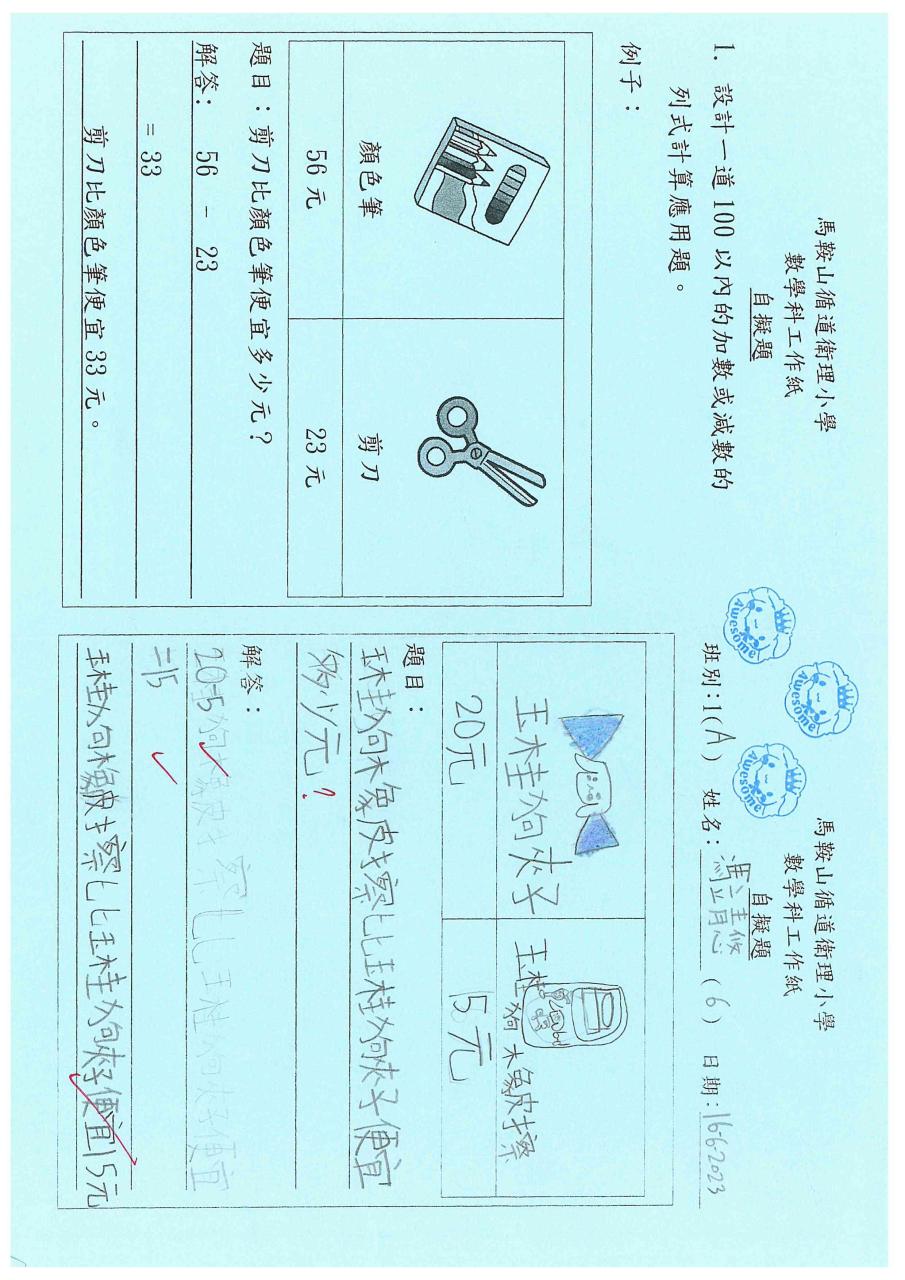 馬鞍山循道衛理小學
數學科工作紙
自擬題
1. 設計一道 100 以內的加數或減數的
列式計算應用題。
例子：
顏色筆
剪刀
56 元
23 元
題目：剪刀比顏色筆便宜多少元？
解答： 56 - 23
= 33
剪刀比顏色筆便宜 33 元。
馬鞍山循道衛理小學
數學科工作紙
自擬題
班別:1(A) 姓名: (6) 日期:16-6-2023
Awesome
Awesome
Awesome
玉桂狗夾子
玉桂狗橡皮擦
20元
5元
題目：
玉桂狗橡皮擦比玉桂狗夾子便宜
多少元？
解答：
20-5
=15
玉桂狗橡皮擦比玉桂狗夾子便宜15元